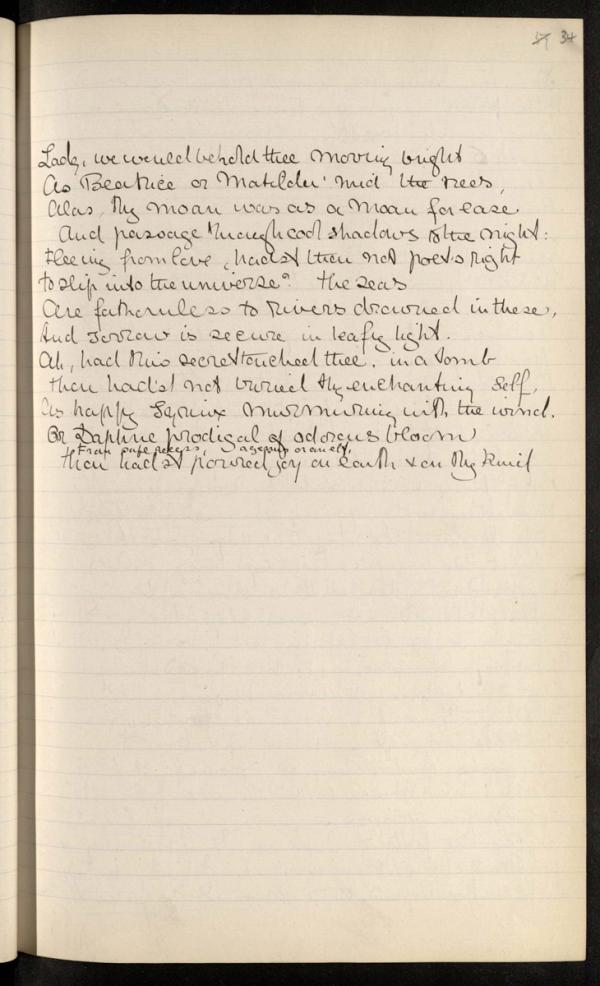 34
Lady, we would behold thee moving bright
As Beatrice or Matilda 'mid the trees,
Alas, thy moan was as a moan for ease
And passage through cool shadows to the night:
Fleeing from love, hadst thou not poet's right
To slip into the universe? The seas
Are fathomless to rivers drowned in these,
And sorrow is secure in leafy light.
Ah, had this secret touched thee, in a tomb
Thou hadst not buried thy enchanting self,
As happy Syrinx murmuring with the wind,
Or Daphne prodigal of odorous bloom
From safe recess, as genius or as elf,
Thou hadst poured joy on earth & on thy kind